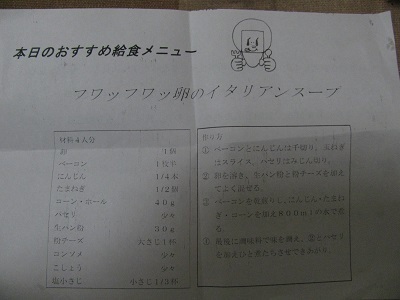 本日のおすすめ給食メニュー
フワッフワッ卵のイタリアンスープ
材料4人分
卵 1個
ベーコン 1枚半
にんじん 1/4本
たまねぎ 1/2個
コーン・ホール 40g
パセリ 少々
生パン粉 30g
粉チーズ 大さじ1杯
コンソメ 少々
こしょう 少々
塩小さじ 小さじ1/3杯
作り方
① ベーコンとにんじんは千切り、玉ねぎ
はスライス、パセリはみじん切り。
② 卵を溶き、生パン粉と粉チーズを加え
てよく混ぜる。
③ ベーコンを乾煎りし、にんじん・たまね
ぎ・コーンを加え800mlの水で煮
る。
④ 最後に調味料で味を調え、②とパセリ
を加えひと煮たちさせてできあがり。